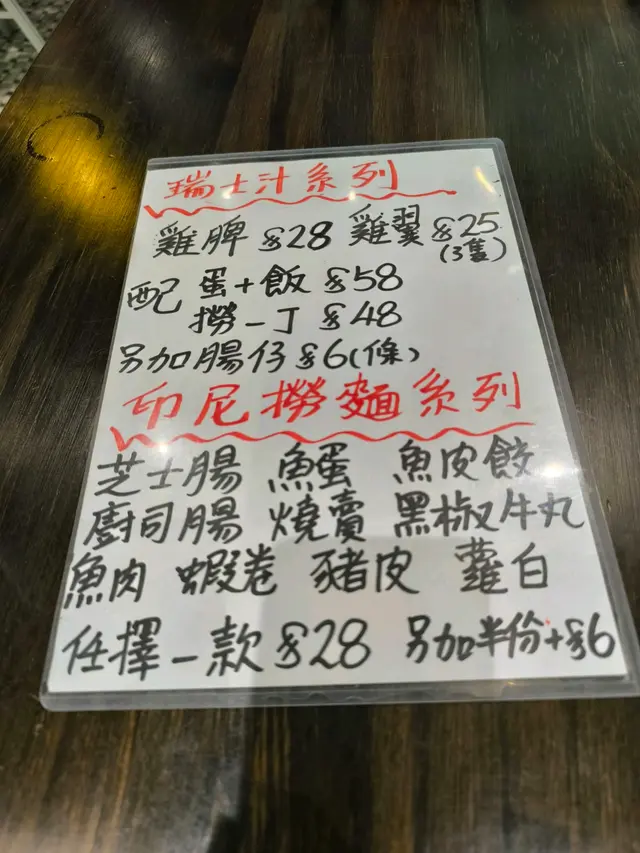 瑞士汁系列
雞脾 $28 雞翼 $25
(3隻)
配 蛋+飯 $58
撈一丁 $48
另加腸仔 $6(條)
印尼撈麵系列
芝士腸 魚蛋 魚皮餃
廚司腸 燒賣 黑椒牛丸
魚肉 蝦卷 豬皮 蘿白
任擇一款 $28 另加半份+$6